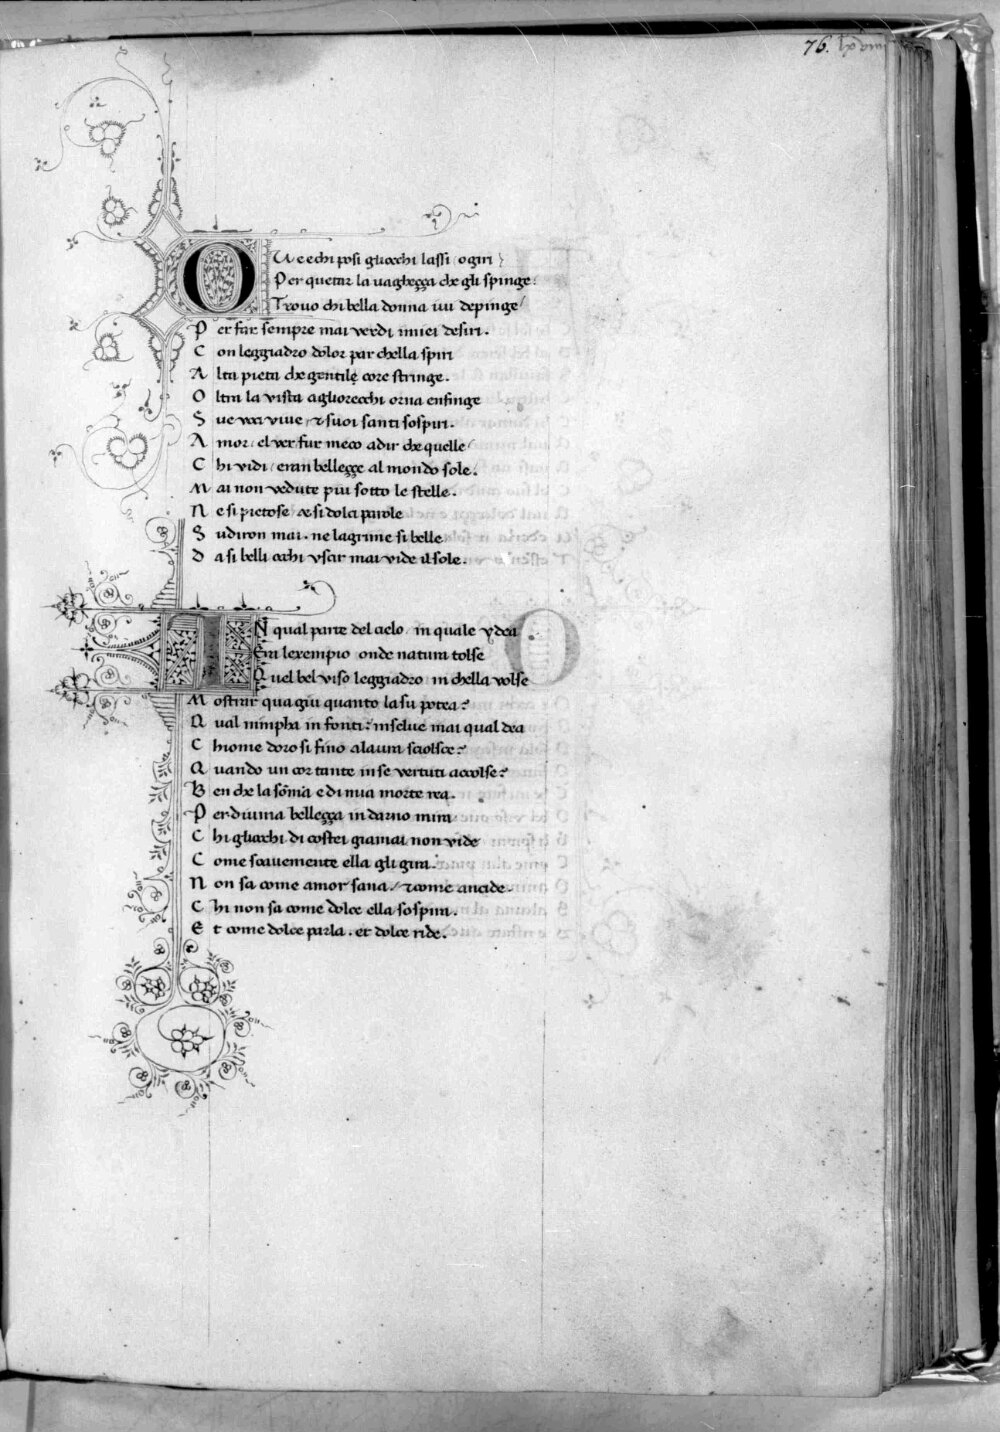 76. lxxviiii
O Ve echi posi gliocchi lassi / ogiri /
Per quetar la vaghezza che gli spinge:
Trovo chi bella donna ivi depinge /
P er far sempre mai verdi imiei desiri.
C on leggiadro dolor par chella spiri
A lta pieta che gentile core stringe.
O ltra la vista agliorecchi orna enfinge
S ue voci vive / et suoi santi sospiri.
A mor / el ver fur meco adir che quelle /
C hi vidi / eran bellezze al mondo sole.
M ai non vedute piu sotto le stelle.
N e si pietose et si dolci parole
S udiron mai. ne lagrime si belle
D a si belli occhi uscir mai vide il sole.
I N qual parte del cielo / in quale ydea
Era lexempio onde natura tolse
Quel bel viso leggiadro / in chella volse
M ostrar qua giu quanto lasu potea?
Q ual nimpha in fonti? inselve mai qual dea
C hiome doro si fino alaura sciolsce?
Q uando un cor tante in se vertuti accolse?
B en che la soma e di mia morte rea.
P er divina bellezza indarno mira
C hi gliocchi di costei giamai non vide
C ome soavemente ella gli gira.
N on sa come amor sana / et come ancide.
C hi non sa come dolce ella sospira.
E t come dolce parla. et dolce ride.